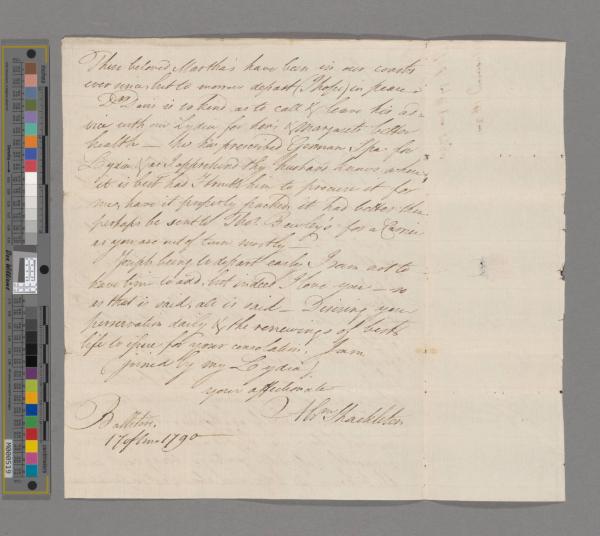 These beloved Martha's have been in our coasts
ever since but to morrow depart (I hope) in peace
Dr. Davis is so kind as to call & leave his ad-
vice with our Lydia for her's & Margaret's better
health — He has prescribed German Spa for
Lydia & as I apprehend thy husband knows where
it is best had I him to procure it for
me, have it properly packed it had better then
perhaps be sent to Thos. Bewley's for a Carrier
as you are out of town mostly —
Joseph being to depart early I am not to
have time to add, but indeed I love you — so
as that is said, all is said — Desiring your
preservation daily & the renewings of best
life to for your consolation, I am
joined by my Lydia,
your affectionate
Abm Shackleton
Ballitore,
17 of 1790
M000519